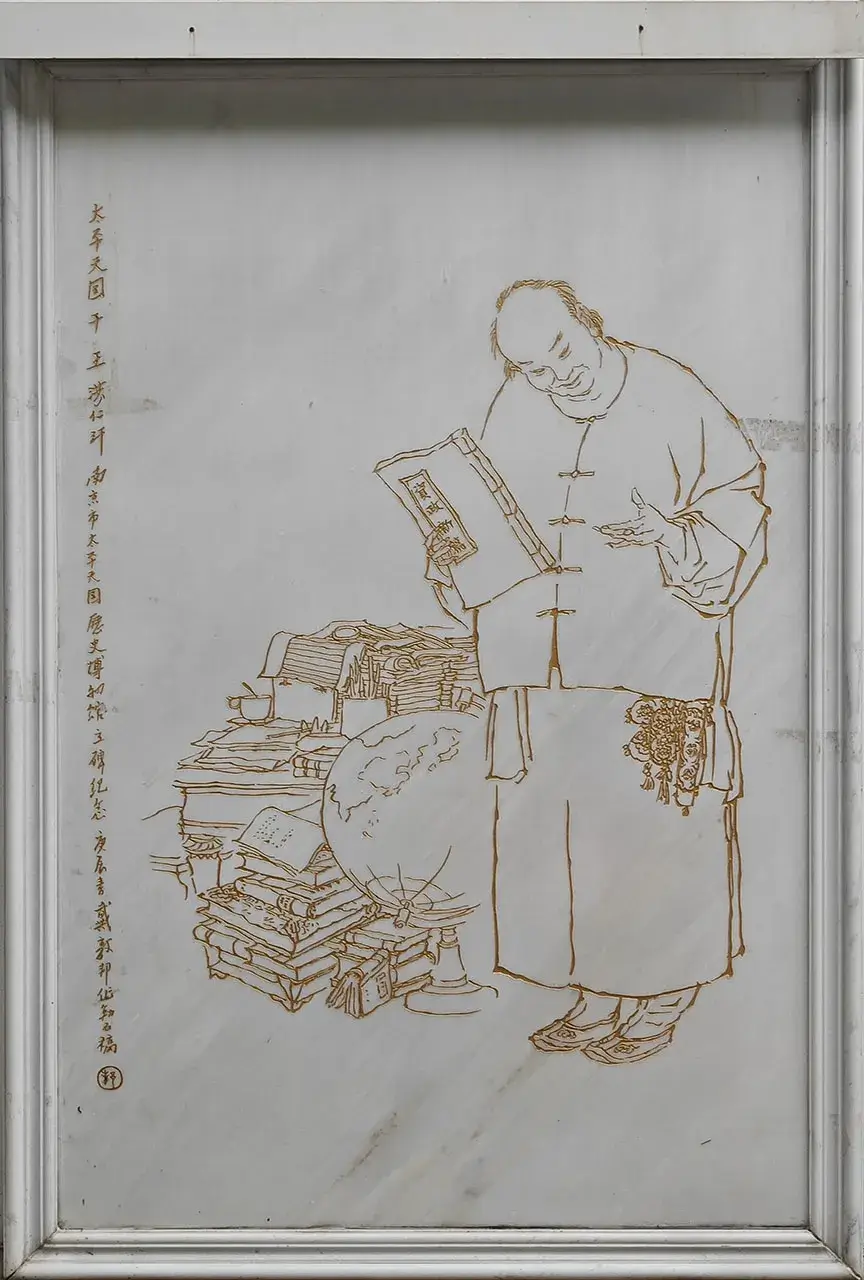 太平天国干王洪仁玕 南京市太平天国歷史博物館立碑紀念 庚辰春 戴敦邦作勒石稿
資政新篇